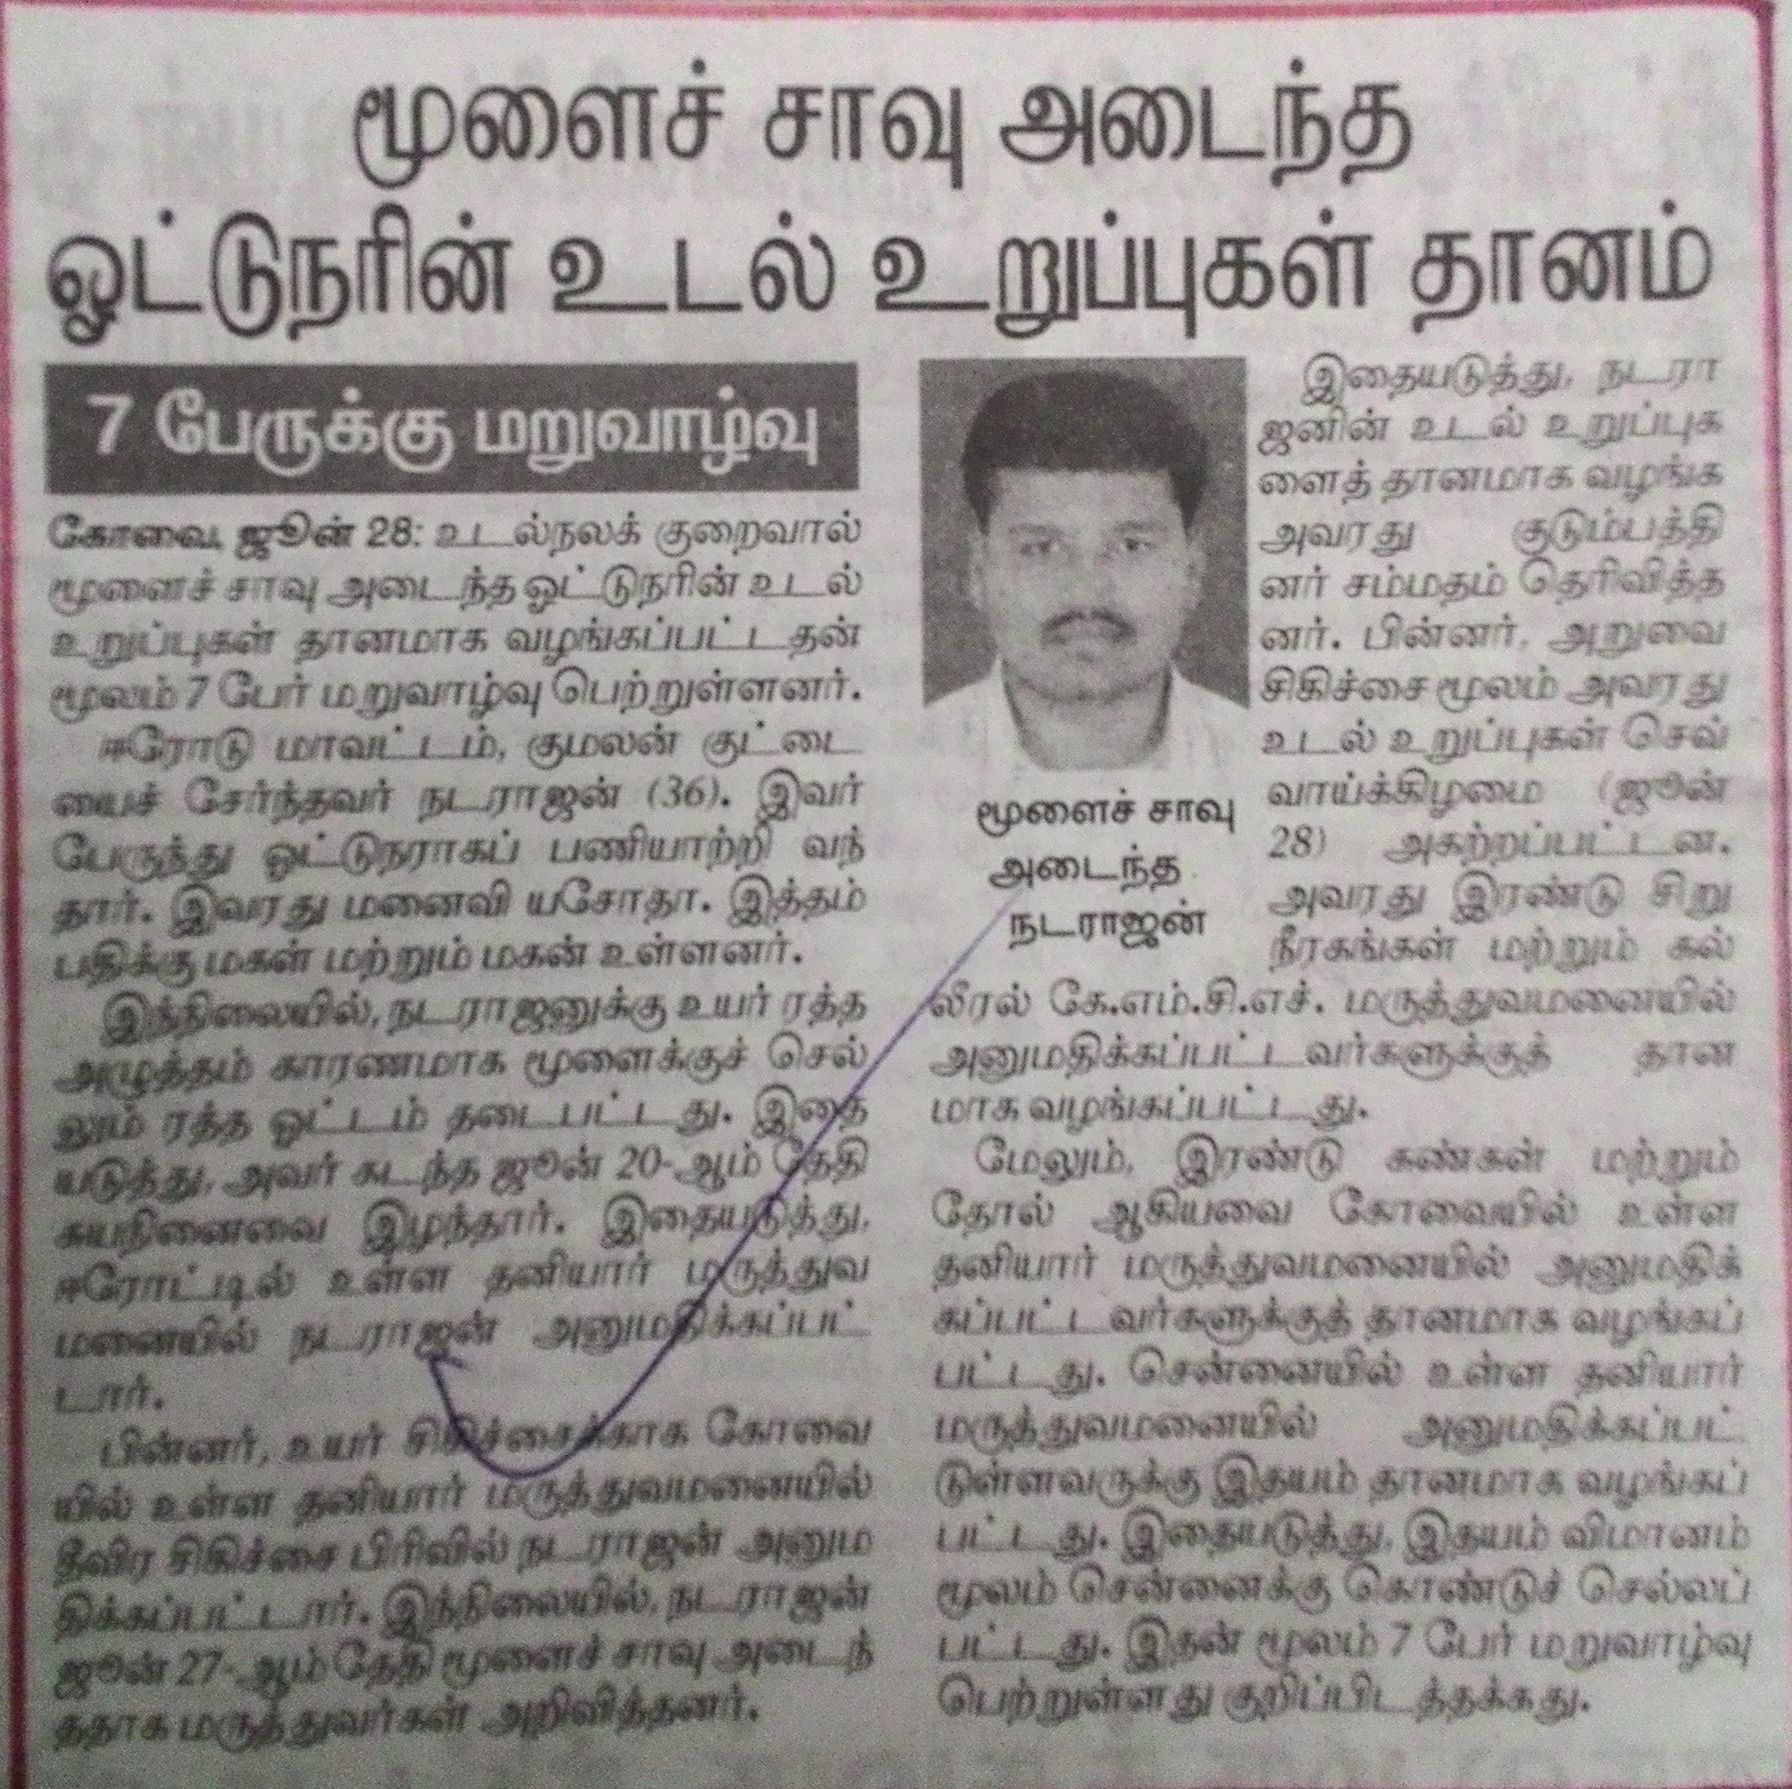 மூளைச் சாவு அடைந்த
ஓட்டுநரின் உடல் உறுப்புகள் தானம்
7 பேருக்கு மறுவாழ்வு
கோவை, ஜூன் 28: உடல்நலக் குறைவால்
மூளைச் சாவு அடைந்த ஓட்டுநரின் உடல்
உறுப்புகள் தானமாக வழங்கப்பட்டதன்
மூலம் 7 பேர் மறுவாழ்வு பெற்றுள்ளனர்.
ஈரோடு மாவட்டம், குமலன் குட்டை
யைச் சேர்ந்தவர் நடராஜன் (36). இவர்
பேருந்து ஓட்டுநராகப் பணியாற்றி வந்
தார். இவரது மனைவி யசோதா. இத்தம்
பதிக்கு மகள் மற்றும் மகன் உள்ளனர்.
இந்நிலையில், நடராஜனுக்கு உயர் ரத்த
அழுத்தம் காரணமாக மூளைக்குச் செல்
லும் ரத்த ஓட்டம் தடைபட்டது. இதை
யடுத்து, அவர் கடந்த ஜூன் 20-ஆம் தேதி
சுயநினைவை இழந்தார். இதையடுத்து,
ஈரோட்டில் உள்ள தனியார் மருத்துவ
மனையில் நடராஜன் அனுமதிக்கப்பட்
டார்.
பின்னர், உயர் சிகிச்சைக்காக கோவை
யில் உள்ள தனியார் மருத்துவமனையில்
தீவிர சிகிச்சை பிரிவில் நடராஜன் அனும
திக்கப்பட்டார். இந்நிலையில், நடராஜன்
ஜூன் 27-ஆம் தேதி மூளைச் சாவு அடைந்
ததாக மருத்துவர்கள் அறிவித்தனர்.
மூளைச் சாவு
அடைந்த
நடராஜன்
இதையடுத்து, நடரா
ஜனின் உடல் உறுப்புக
ளைத் தானமாக வழங்க
அவரது குடும்பத்தி
னர் சம்மதம் தெரிவித்த
னர். பின்னர், அறுவை
சிகிச்சை மூலம் அவரது
உடல் உறுப்புகள் செவ்
வாய்க்கிழமை (ஜூன்
28) அகற்றப்பட்டன.
அவரது இரண்டு சிறு
நீரகங்கள் மற்றும் கல்
லீரல் கே.எம்.சி.எச். மருத்துவமனையில்
அனுமதிக்கப்பட்டவர்களுக்குத் தான
மாக வழங்கப்பட்டது.
மேலும், இரண்டு கண்கள் மற்றும்
தோல் ஆகியவை கோவையில் உள்ள
தனியார் மருத்துவமனையில் அனுமதிக்
கப்பட்டவர்களுக்குத் தானமாக வழங்கப்
பட்டது. சென்னையில் உள்ள தனியார்
மருத்துவமனையில் அனுமதிக்கப்பட்
டுள்ளவருக்கு இதயம் தானமாக வழங்கப்
பட்டது. இதையடுத்து, இதயம் விமானம்
மூலம் சென்னைக்கு கொண்டுச் செல்லப்
பட்டது. இதன் மூலம் 7 பேர் மறுவாழ்வு
பெற்றுள்ளது குறிப்பிடத்தக்கது.